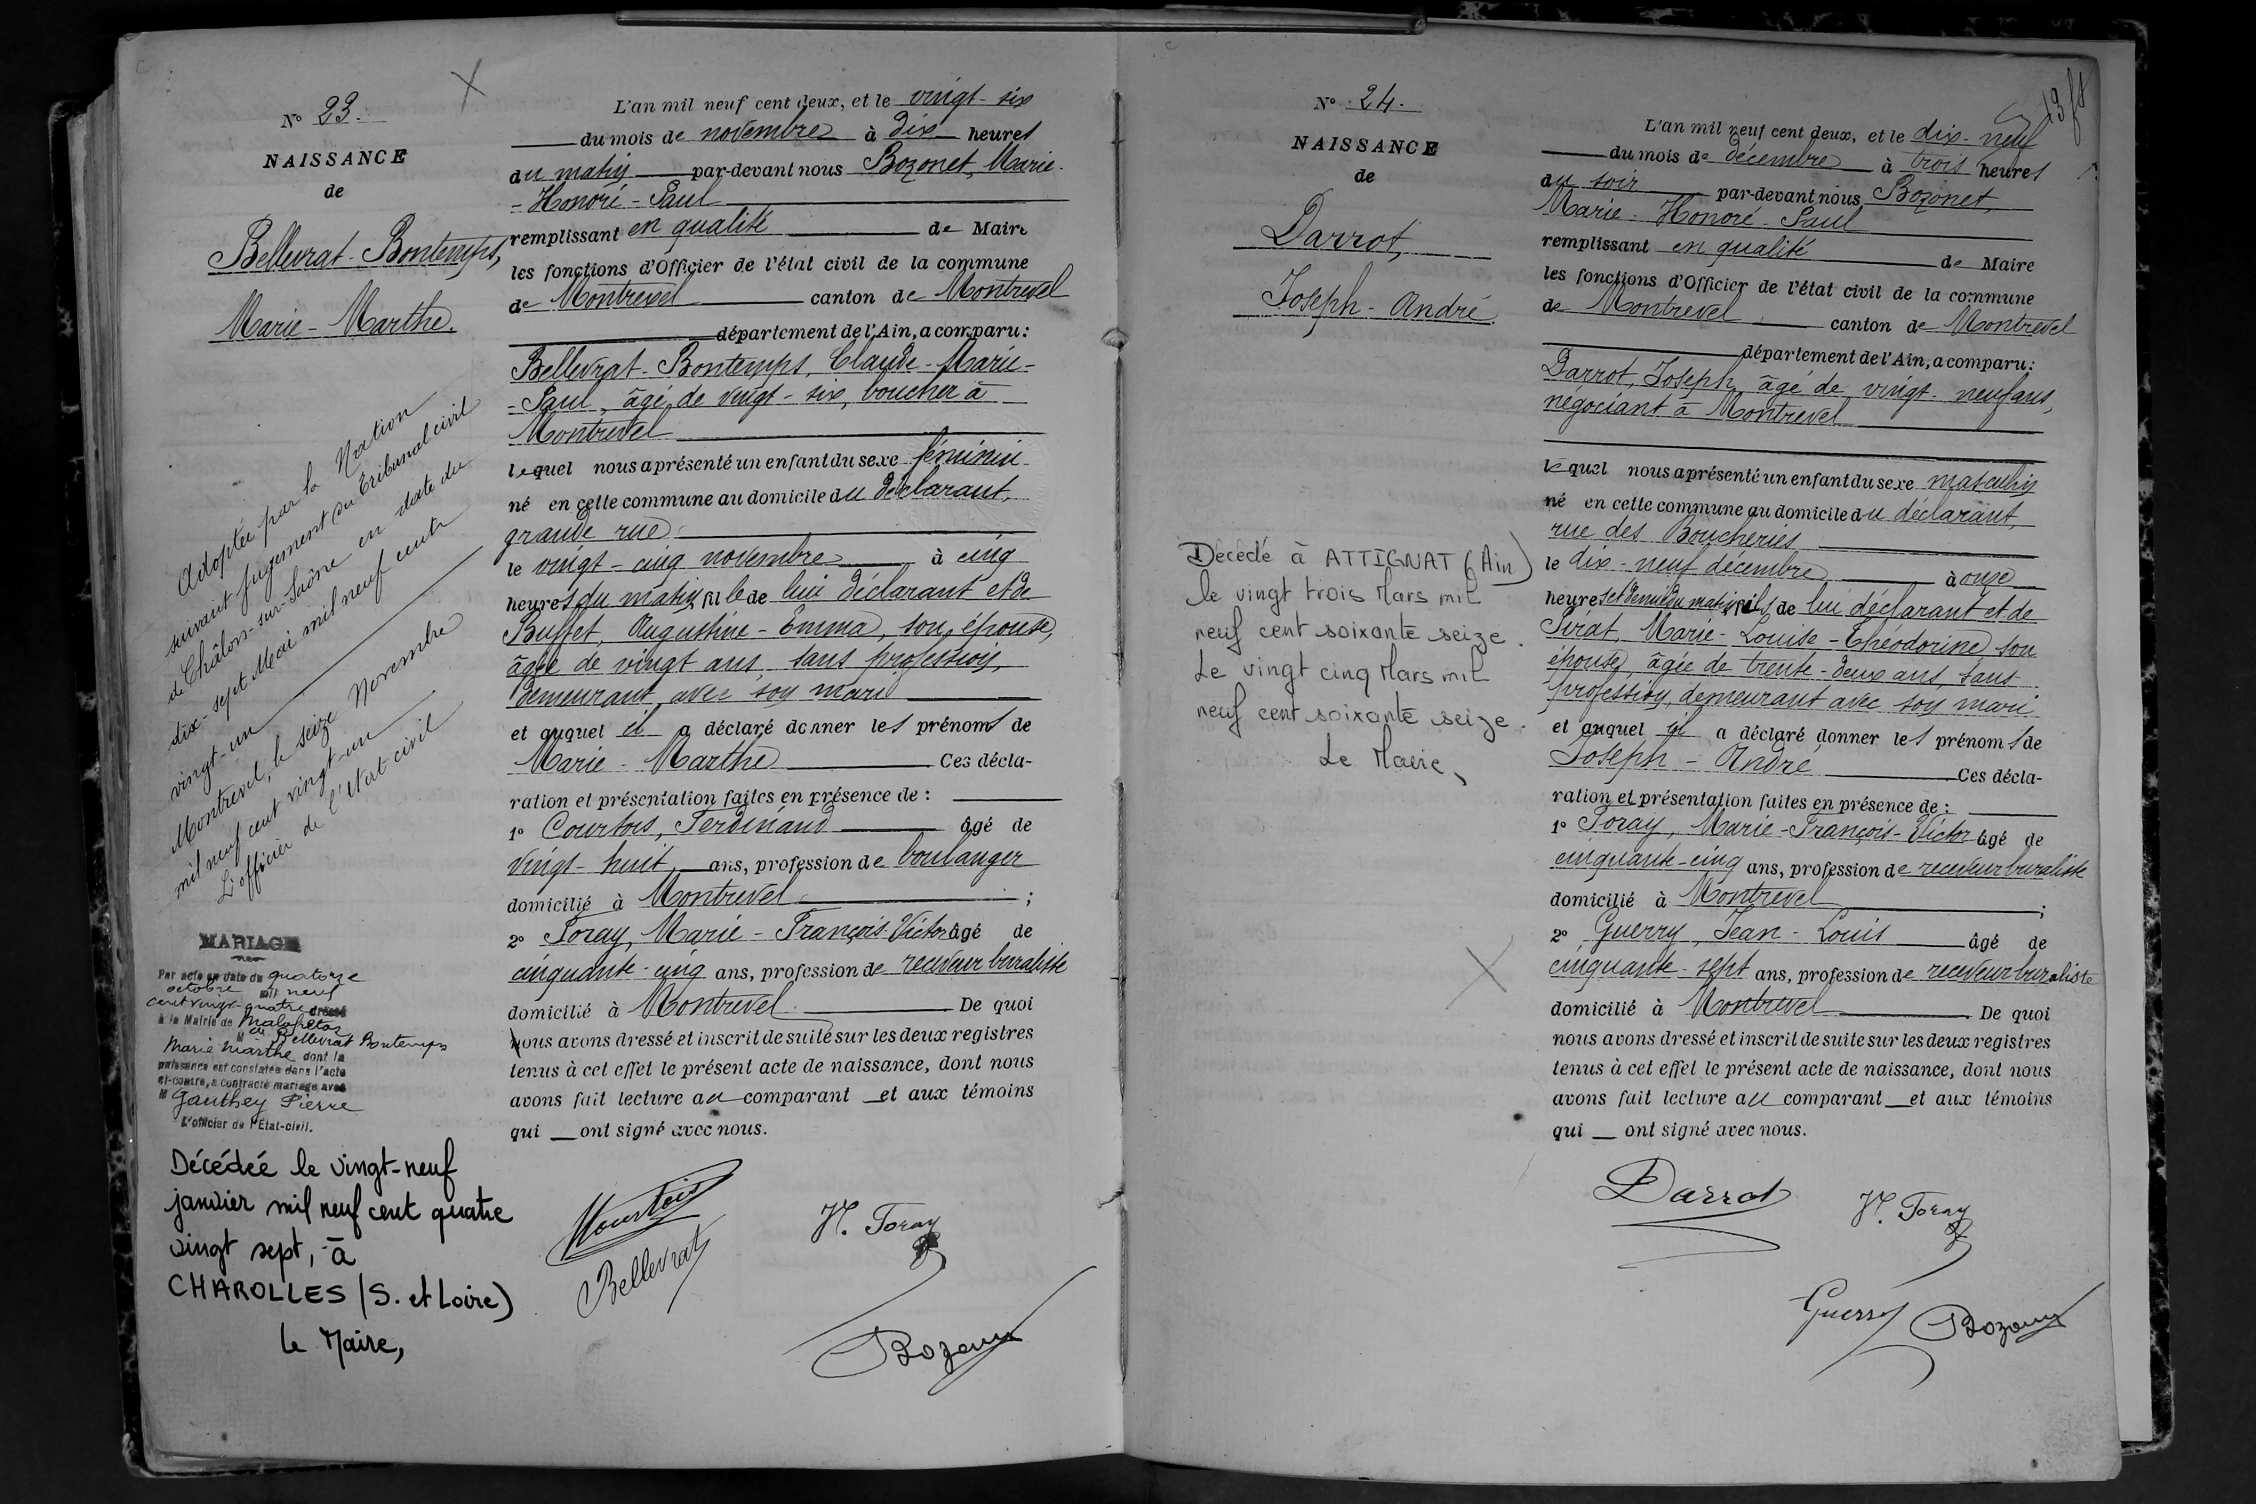 N° 23.
NAISSANCE
de
Bellevrat-Bontemps,
Marie-Marthe.
Adoptée par la Nation
suivant jugement du Tribunal civil
de Châlon-sur-Saône en date du
dix-sept Mai mil neuf cent
vingt-un
Montrevel, le seize Novembre
mil neuf cent vingt-un
L'officier de l'Etat civil
MARIAGE
Par acte en date du quatorze
octobre mil neuf
cent vingt-quatre dressé
à la Mairie de
M Bellevrat Bontemps
Marie Marthe dont la
naissance est constatée dans l'acte
ci-contre, a contracté mariage avec
M Gauthey Pierre
L'officier de l'Etat-civil.
Décédée le vingt-neuf
janvier mil neuf cent quatre
vingt sept, à
CHAROLLES (S. et Loire)
Le Maire,
L'an mil neuf cent deux, et le vingt-six
du mois de novembre à dix heures
du matin par-devant nous Bozonet, Marie-
-Honoré-Paul
remplissant en qualité de Maire
les fonctions d'Officier de l'état civil de la commune
de Montrevel canton de Montrevel
département de l'Ain, a comparu:
Bellevrat-Bontemps, Claude-Marie-
-Paul, âgé de vingt-six, boucher à
Montrevel
lequel nous a présenté un enfant du sexe féminin
né en cette commune au domicile du déclarant,
grande rue
le vingt-cinq novembre à cinq
heures du matin, fille de lui déclarant et de
Buffet, Augustine-Emma, son épouse,
âgée de vingt ans, sans profession,
demeurant avec son mari
et auquel il a déclaré donner les prénoms de
Marie-Marthe Ces décla-
ration et présentation faites en présence de :
1° Courtois, Ferdinand âgé de
vingt-huit ans, profession de boulanger
domicilié à Montrevel ;
2° Foray, Marie-François-Victor âgé de
cinquante-cinq ans, profession de receveur buraliste
domicilié à Montrevel De quoi
nous avons dressé et inscrit de suite sur les deux registres
tenus à cet effet le présent acte de naissance, dont nous
avons fait lecture au comparant et aux témoins
qui ont signé avec nous.
Courtois
V. Foray
Bellevrat
Bozonet
N° 24.
NAISSANCE
de
Darrot,
Joseph-André.
Décédé à ATTIGNAT (Ain)
le vingt trois Mars mil
neuf cent soixante seize.
Le vingt cinq Mars mil
neuf cent soixante seize.
Le Maire,
L'an mil neuf cent deux, et le dix-neuf
du mois de décembre à trois heures
du soir par-devant nous Bozonet,
Marie-Honoré-Paul
remplissant en qualité de Maire
les fonctions d'Officier de l'état civil de la commune
de Montrevel canton de Montrevel
département de l'Ain, a comparu:
Darrot, Joseph, âgé de vingt-neuf ans,
négociant à Montrevel
lequel nous a présenté un enfant du sexe masculin
né en cette commune au domicile du déclarant,
rue des Boucheries
le dix-neuf décembre à onze
heures et demie du matin, fils de lui déclarant et de
Marie-Louise-Théodorine, son
épouse, âgée de trente-deux ans, sans
profession, demeurant avec son mari
et auquel il a déclaré donner les prénoms de
Joseph-André Ces décla-
ration et présentation faites en présence de :
1° Foray, Marie-François-Victor âgé de
cinquante-cinq ans, profession de receveur buraliste
domicilié à Montrevel ;
2° Guerry, Jean-Louis âgé de
cinquante-sept ans, profession de receveur buraliste
domicilié à Montrevel De quoi
nous avons dressé et inscrit de suite sur les deux registres
tenus à cet effet le présent acte de naissance, dont nous
avons fait lecture au comparant et aux témoins
qui ont signé avec nous.
Darrot
V. Foray
Guerry
Bozonet